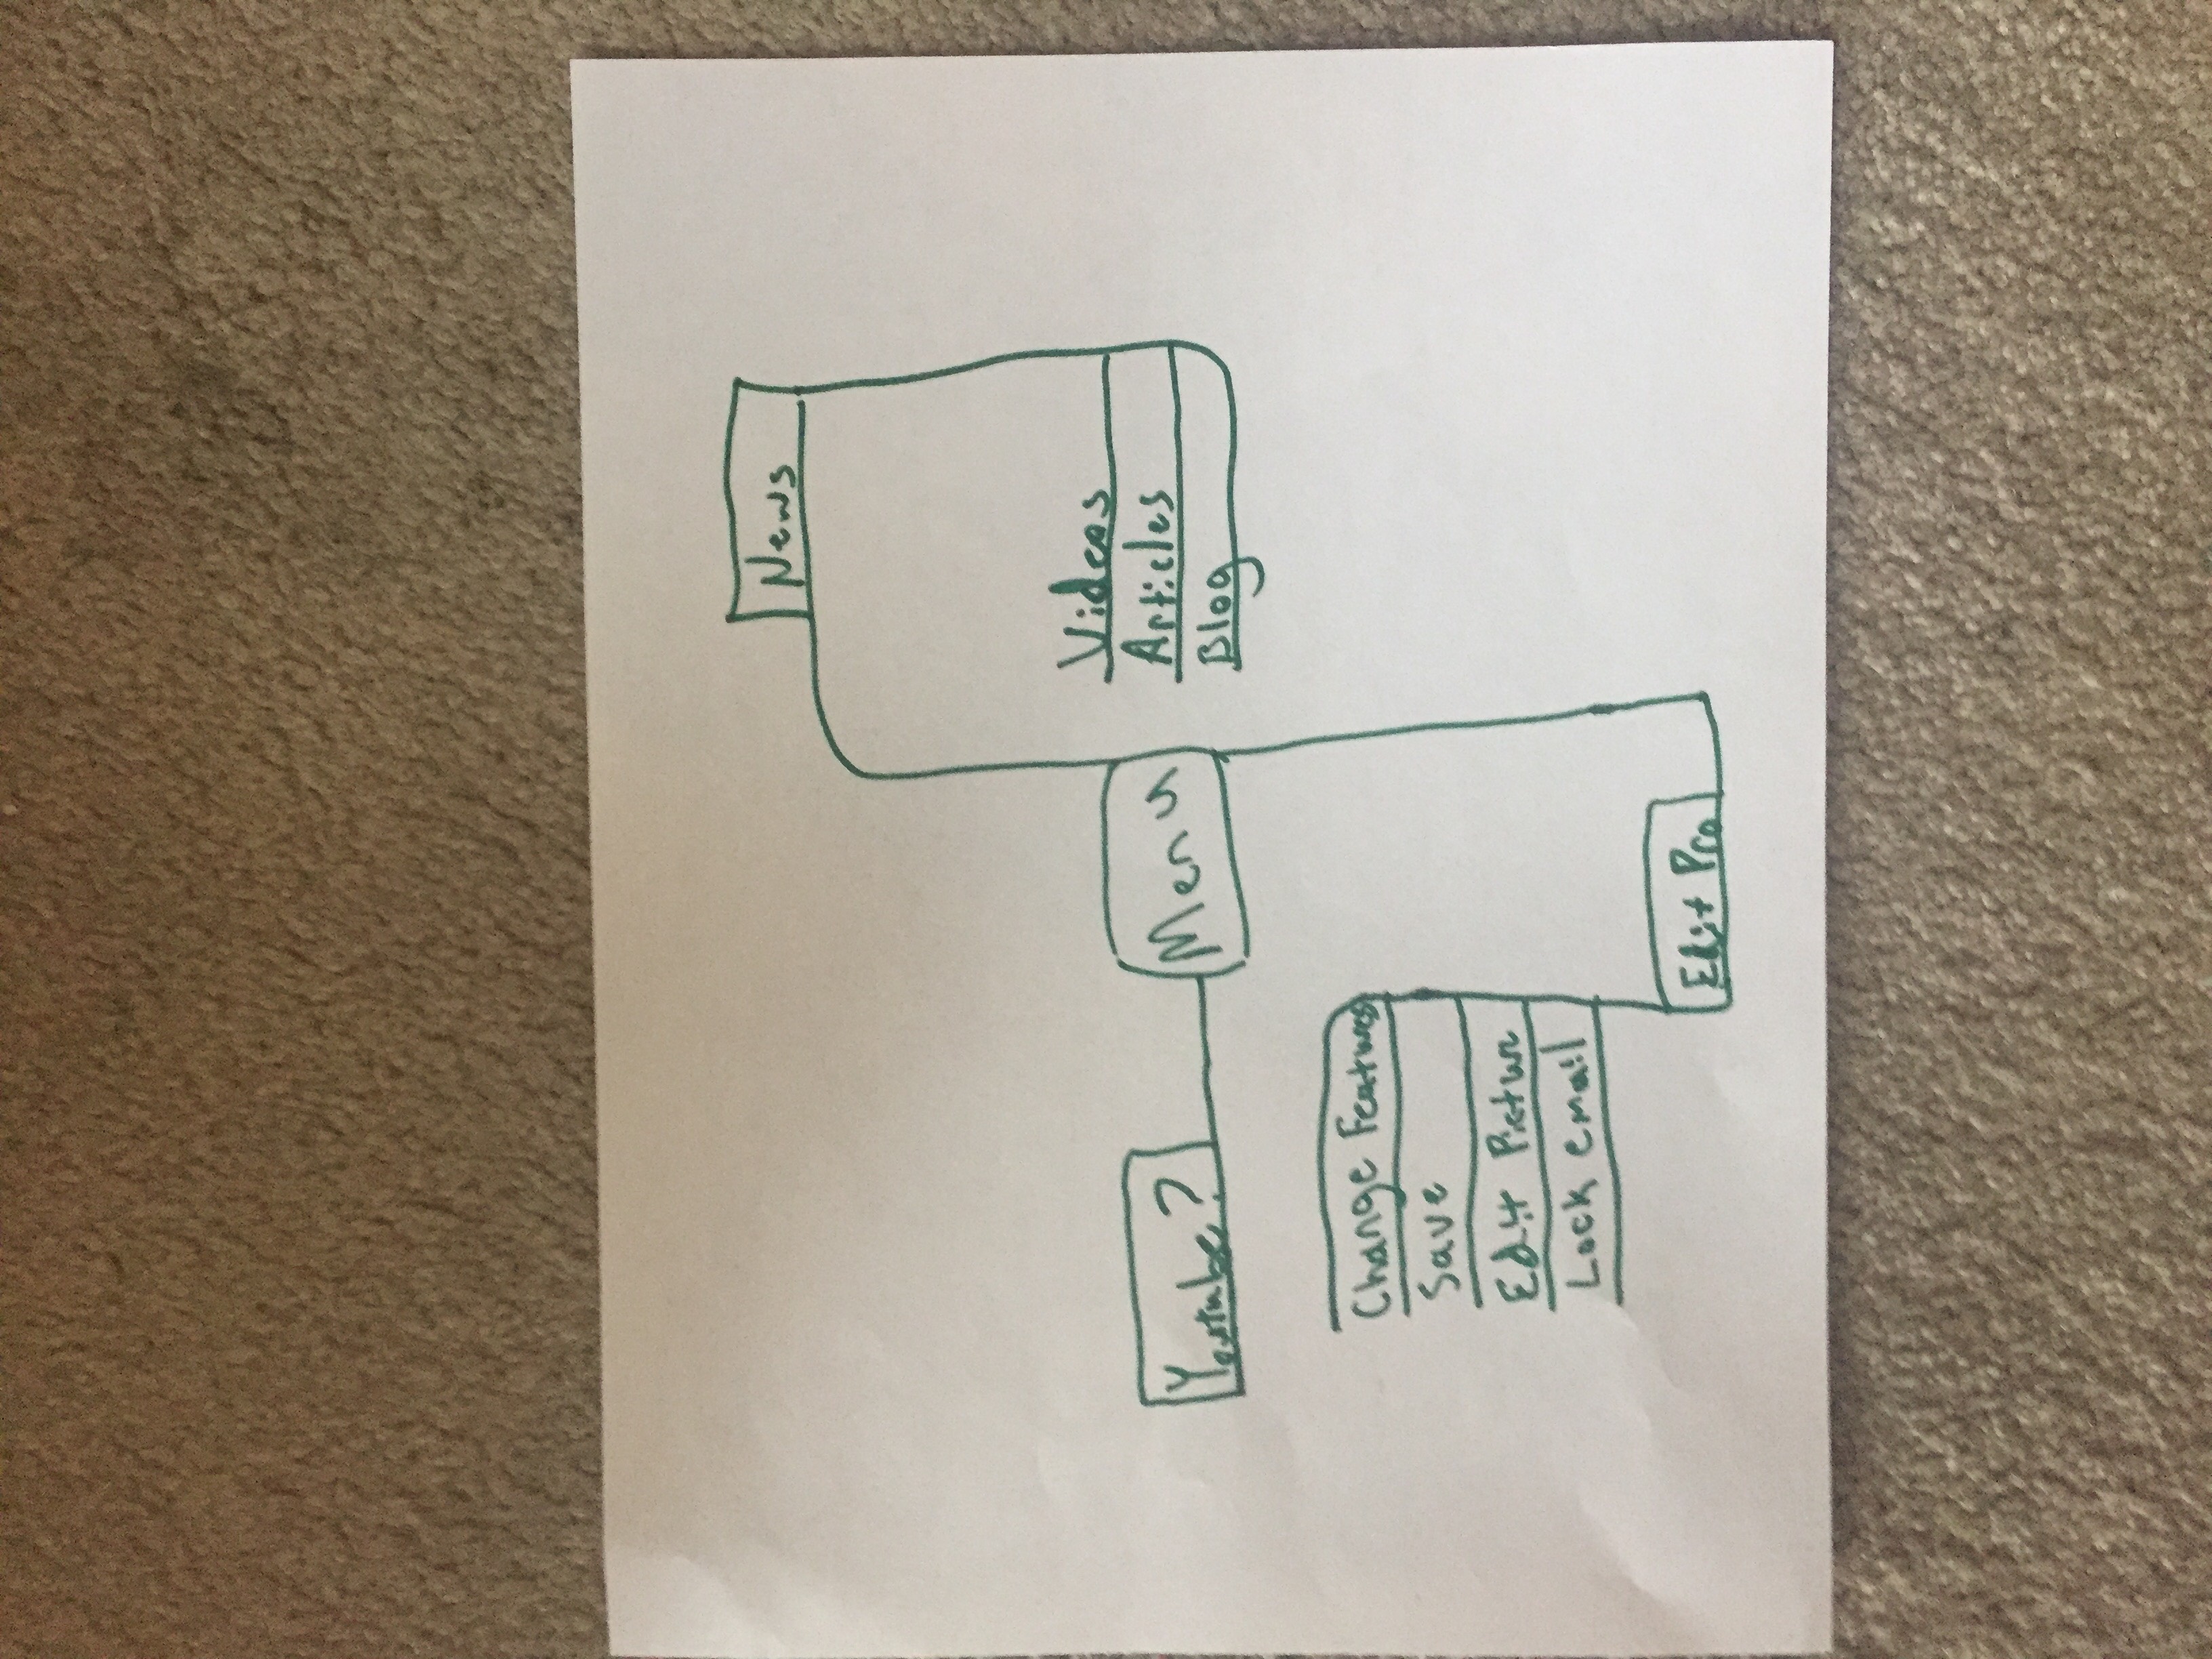 News
Videos
Articles
Blog
Menu
Youtube?
Change Features
Save
Edit Pictur
Lock email
Edit Pro